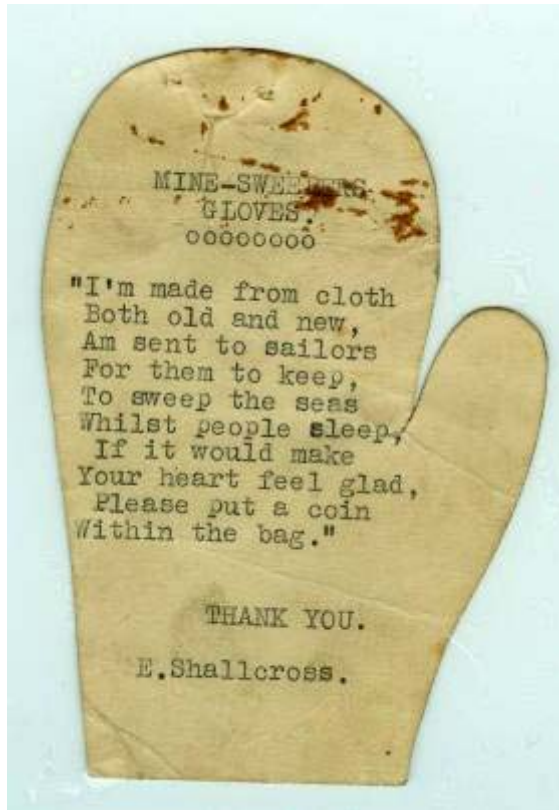 MINE-SWEEPERS
GLOVES.
oooooooo
"I'm made from cloth
Both old and new,
Am sent to sailors
For them to keep,
To sweep the seas
Whilst people sleep,
If it would make
Your heart feel glad,
Please put a coin
Within the bag."
THANK YOU.
E.Shallcross.